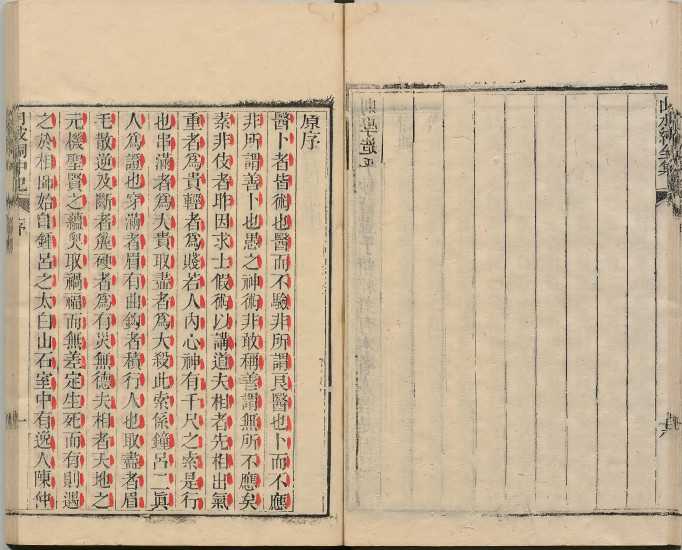 原序
醫卜者皆術也醫而不驗非所謂良醫也卜而不應
非所謂善卜也愚之神術非敢稱善謂無所不應矣
索非伎者耶因求士假術以講道夫相者先相出氣
重者為貴輕者為賤若人內心神有千尺之索是行
也串滿者為大貴取盡者為大殺此索係鐘呂二真
人為證也穿滿者眉有曲鈎者積行人也取盡者眉
毛散逆及斷者麄硬者為有災無德夫相者天地之
元機聖賢之蘊奥取禍福而無差定生死而有則遇
之於相師始自鍾呂之太白山石室中有逸人陳仲
月波洞中記
序
一